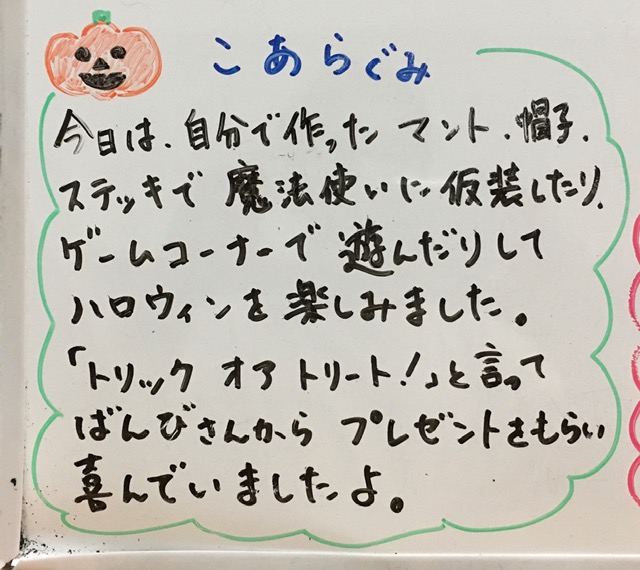 こあらぐみ
今日は、自分で作った マント、帽子、
ステッキで 魔法使いに 仮装したり、
ゲームコーナーで 遊んだりして
ハロウィンを 楽しみました。
「トリック オア トリート!」と言って
ばんびさんから プレゼントをもらい
喜んでいましたよ。